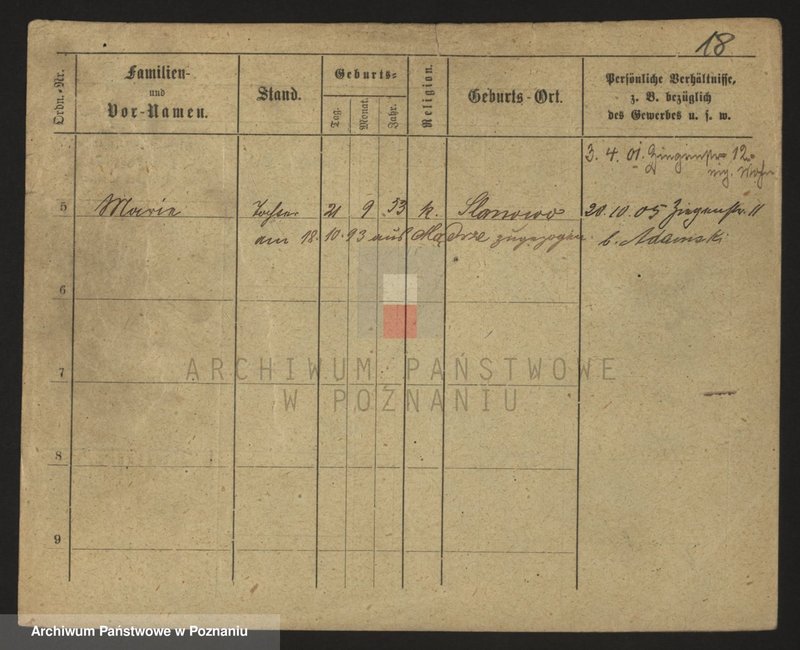 18
Ordn.-Nr.
Familien-
und
Vor-Namen.
Stand.
Geburts-
Tag.
Monat.
Jahr.
Religion.
Geburts-Ort.
Persönliche Verhältnisse,
z. B. bezüglich
des Gewerbes u. s. w.
3. 4. 01. 12
5 Marie Tochter 21 9 93 k. Slanowo 20. 10. 05 Ziegenstr. 11
am 18. 10. 93 aus Mądre zugezogen. b. Adamski
6
7
8
9
ARCHIWUM PAŃSTWOWE
W POZNANIU
Archiwum Państwowe w Poznaniu